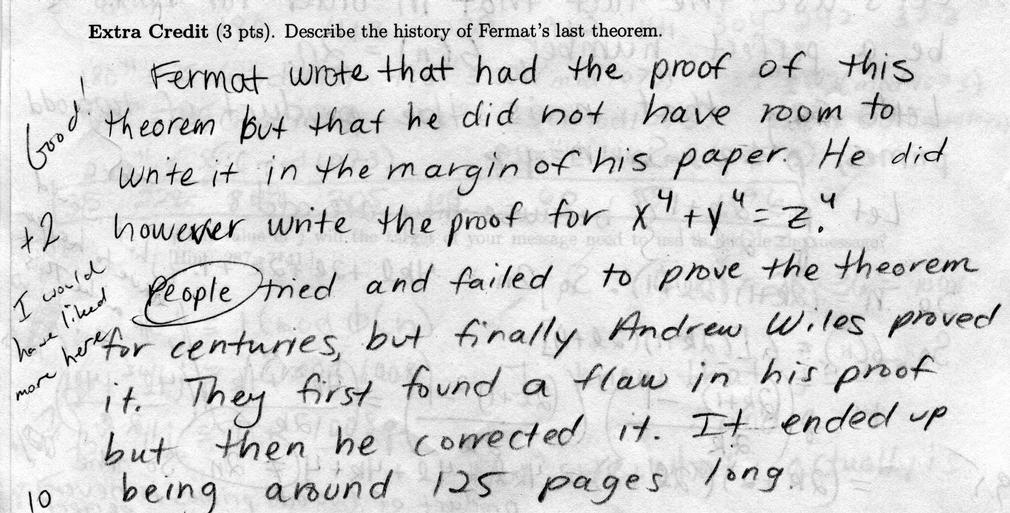 Extra Credit (3 pts). Describe the history of Fermat's last theorem.
Fermat wrote that had the proof of this
Good!
theorem but that he did not have room to
write it in the margin of his paper. He did
+2
however write the proof for x⁴+y⁴=z.⁴
I would
have liked
more here
People tried and failed to prove the theorem
for centuries, but finally Andrew Wiles proved
it. They first found a flaw in his proof
but then he corrected it. It ended up
10
being around 125 pages long.